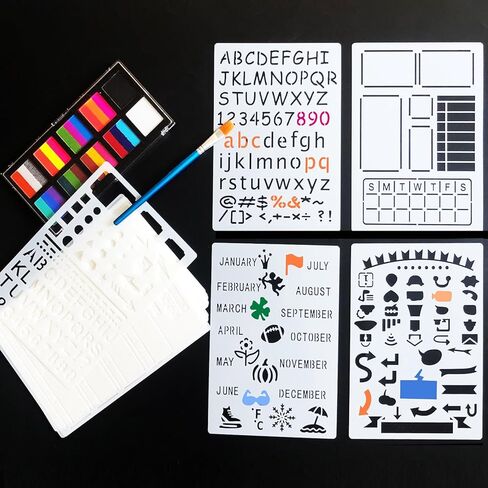 ABCDEFGHI
JKLMNOPQR
STUVWXYZ
1234567890
abcdefgh
ijklmnopq
rstuvwxyz
@#$%&*~
/[]> <,+-×÷ ?!
S M T W T F S
JANUARY JULY
FEBRUARY AUGUST
MARCH SEPTEMBER
APRIL OCTOBER
MAY NOVEMBER
JUNE DECEMBER
°F
°C